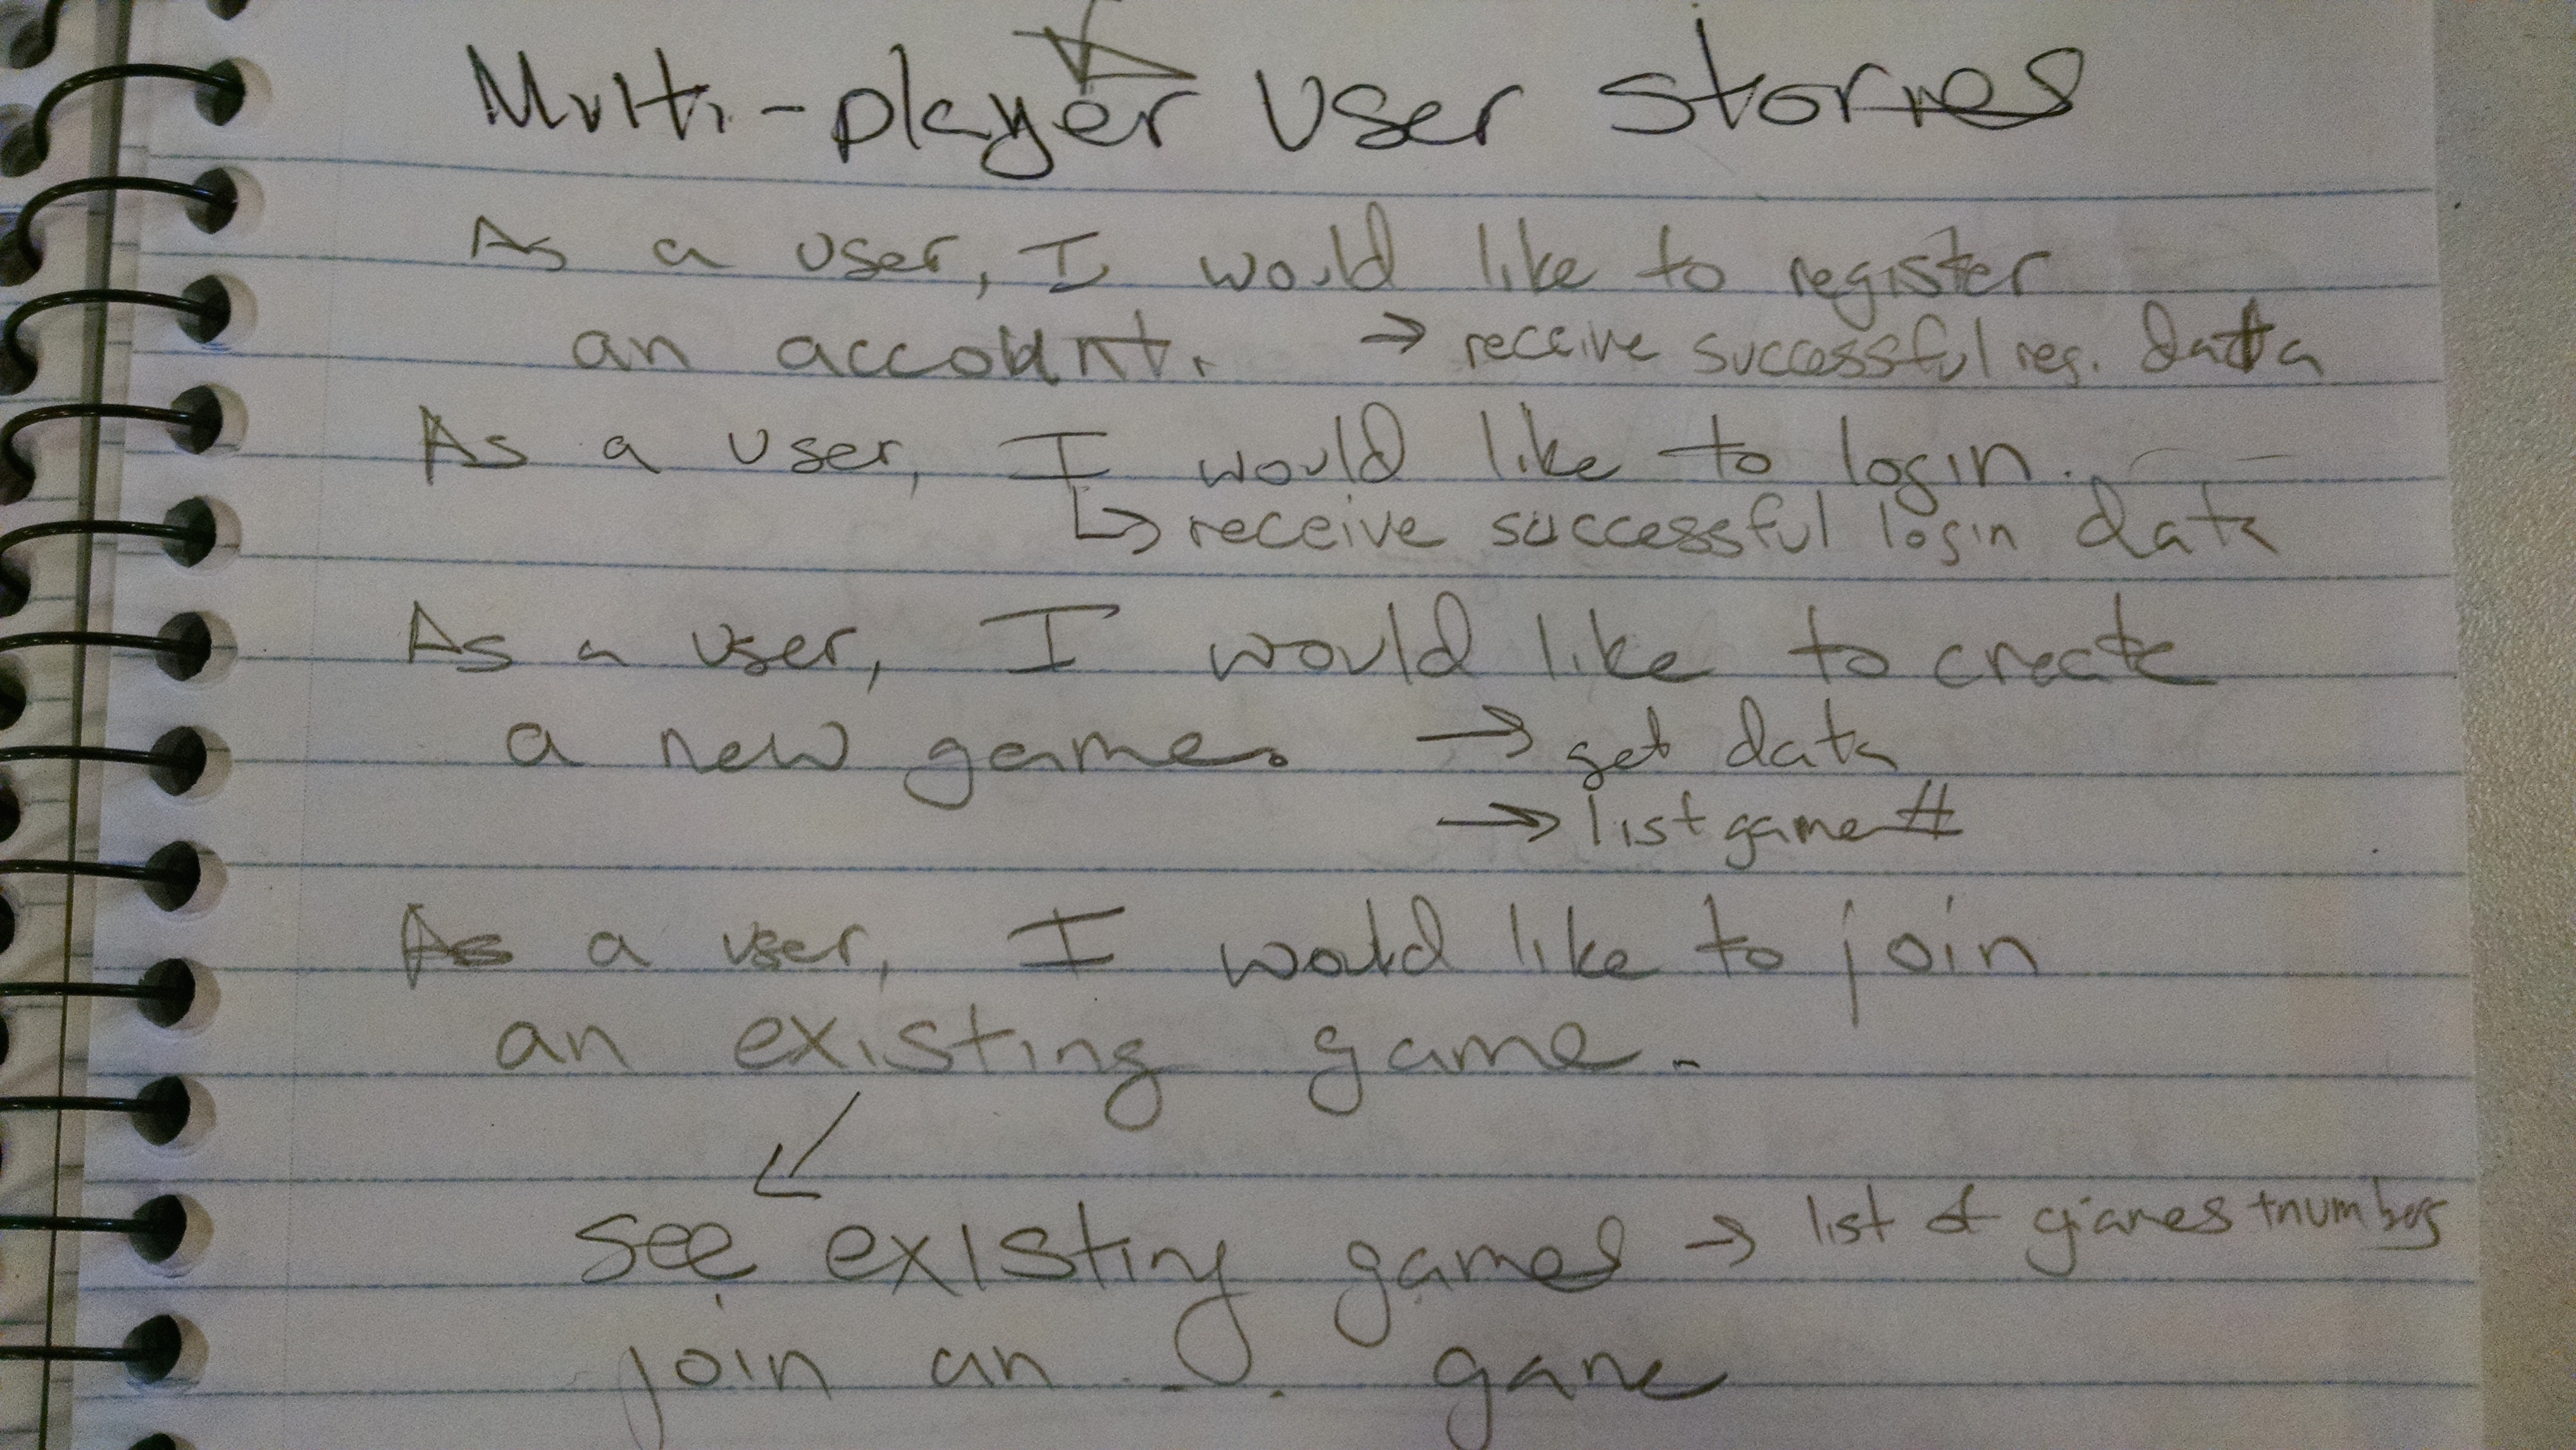 Multi-player User stories
As a user, I would like to register
an account. → receive successful reg. data
As a user, I would like to login.
↳ receive successful login data
As a user, I would like to create
a new game. → get data
→ list game #
As a user, I would like to join
an existing game.
see existing games → list of games + numbers
join an . . . game